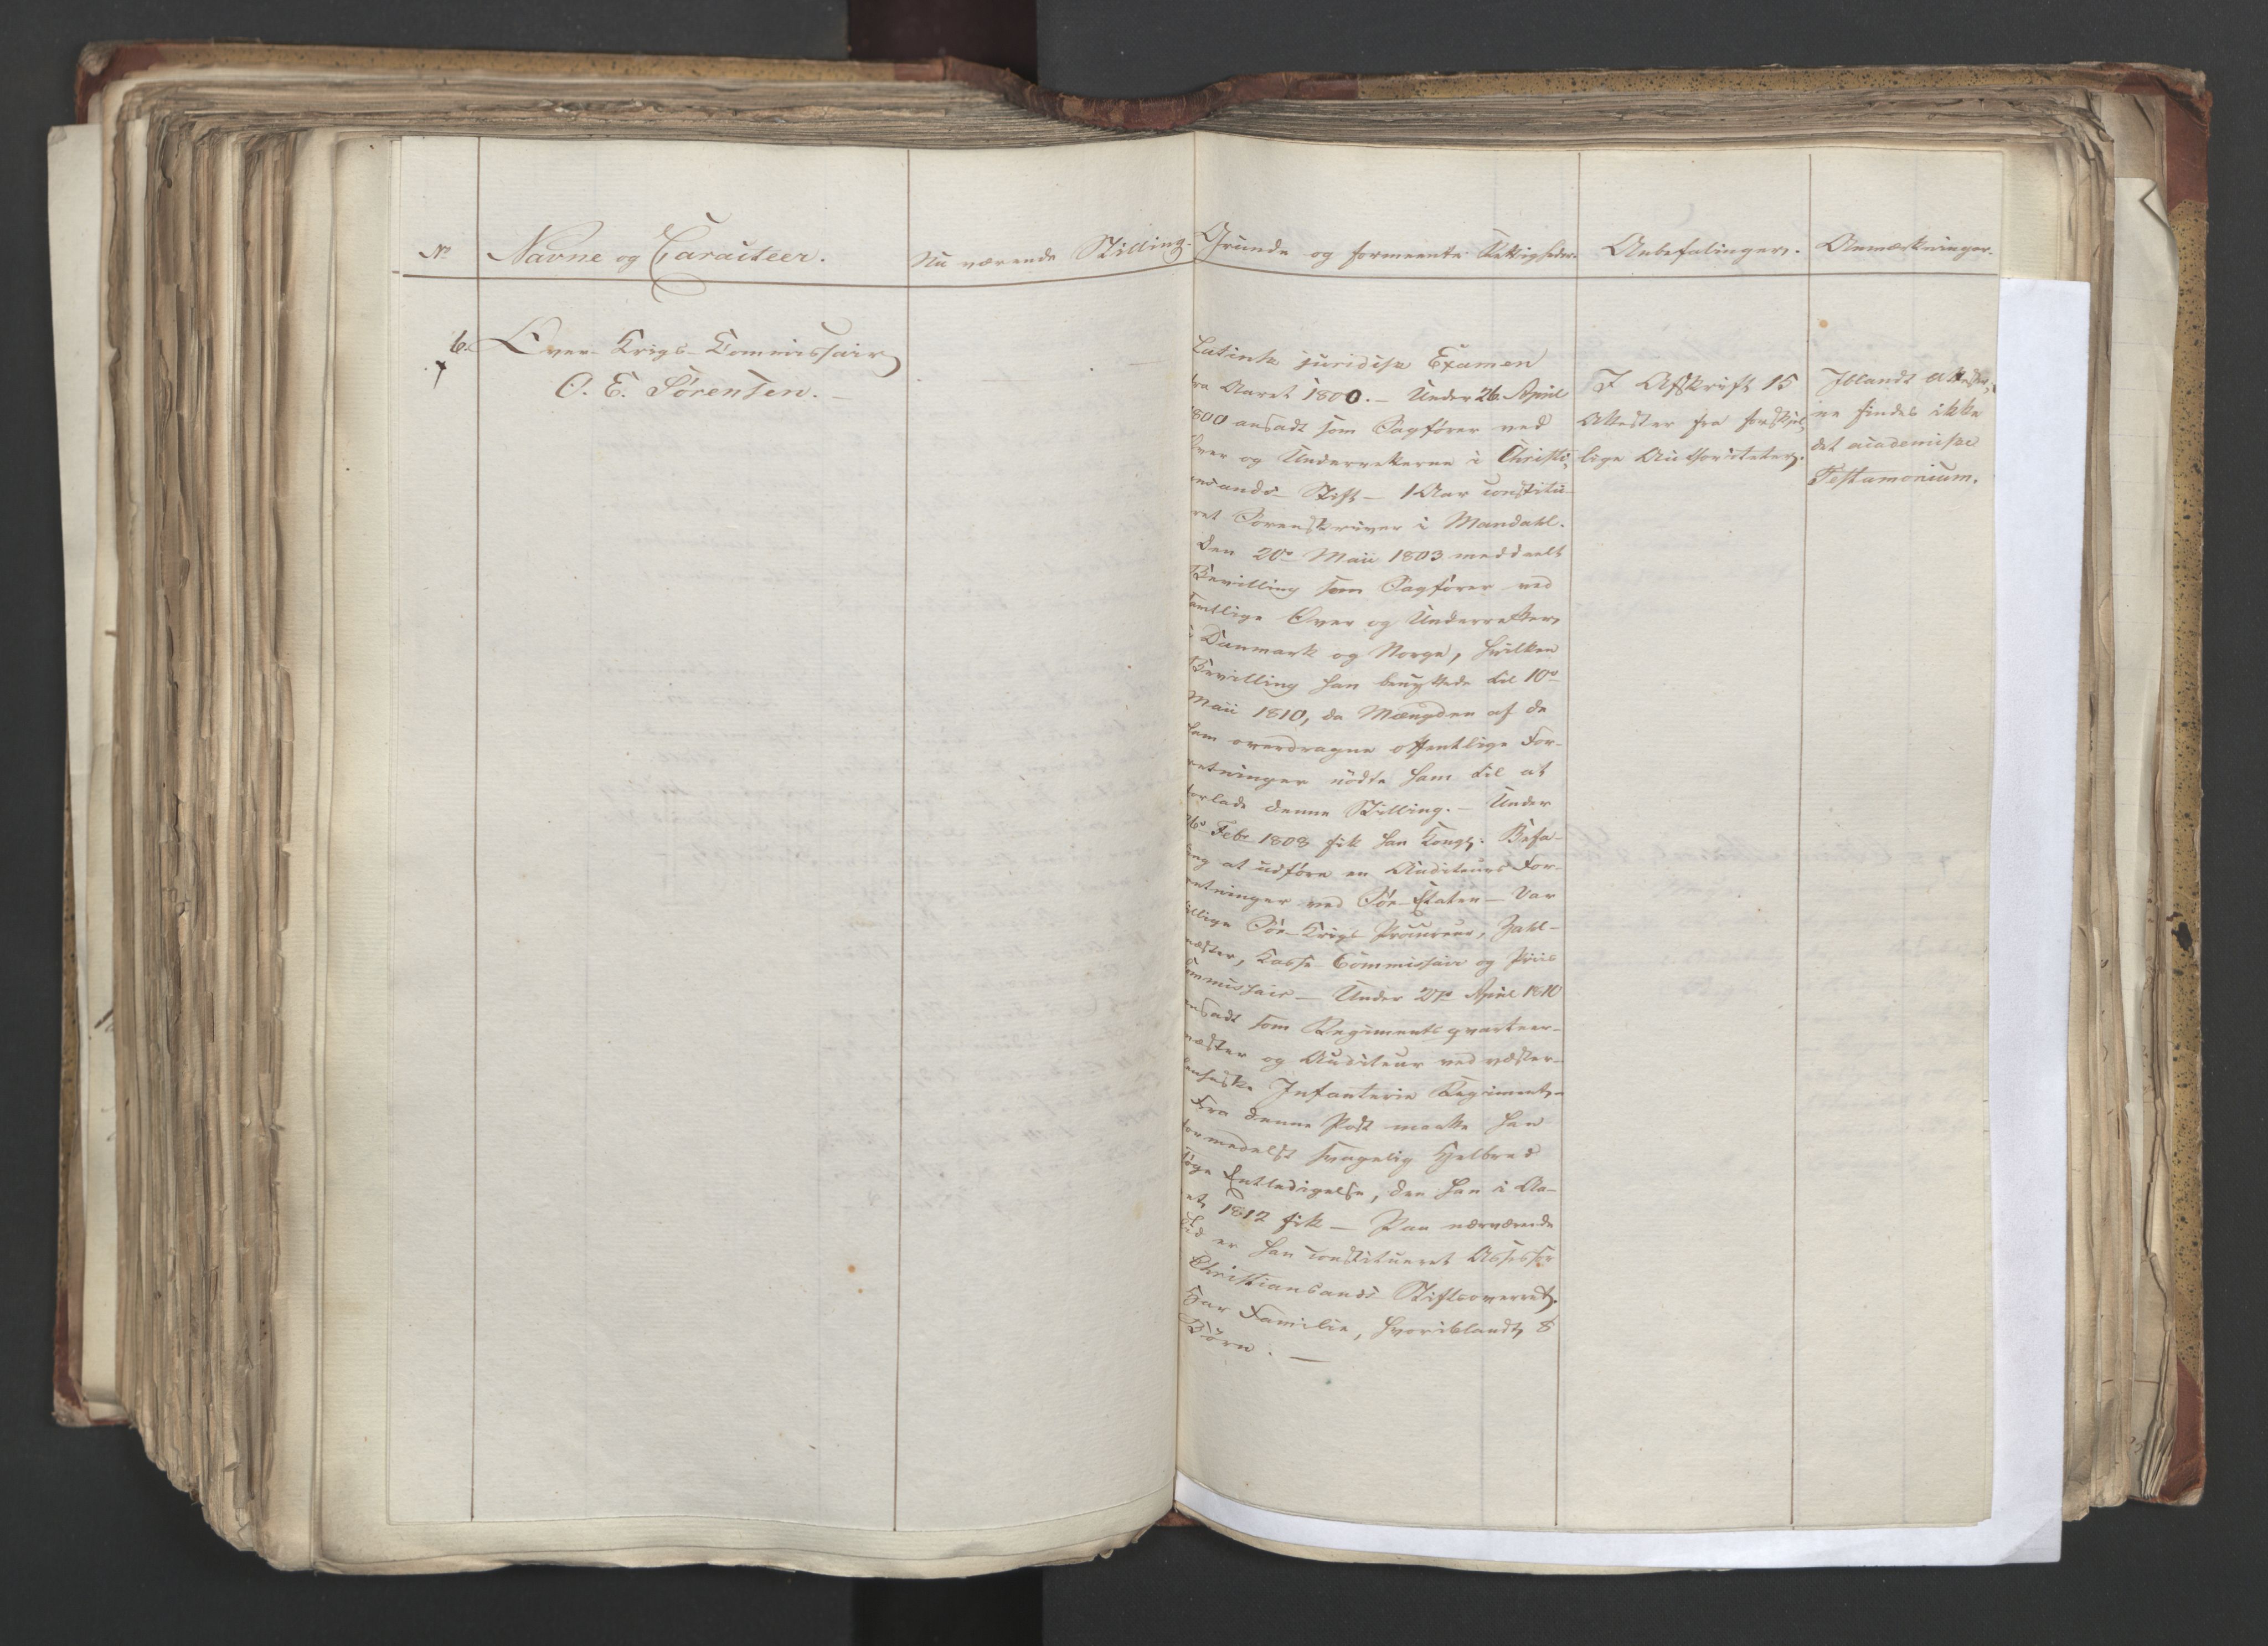 No
Navne og Caracteer.
Nu værende Stilling.
Grunde og formeente Rettigheder.
Anbefalinger.
Anmærkninger.
6.
Over-Krigs-Commissair
O. E. Sörensen. —
Latinsk juridisk Examen
fra Aaret 1800. — Under 26 April
1800 ansadt som Sagfører ved
Over og Underretterne i Christi-
ansands Stift — 1 Aar constitu-
ret Sorenskriver i Mandahl.
Den 20de Maii 1803 meddeelt
Bevilling som Sagfører ved
samtlige Over og Underretter
i Danmark og Norge, hvilken
Bevilling han benyttede til 10de
Maii 1810, da Mængden af de
ham overdragne offentlige For-
retninger nödte ham til at
forlade denne Stilling. — Under
26de Febr 1808 fik han Kongl: Befa-
ling at udföre en Auditeurs For-
retninger ved Söe-Etaten — Var
tillige Söe-Krigs Procureur, Zahl-
mester, Casse-Commissair og Priis
Commissair — Under 27de April 1810
ansadt som Regimentsqvarteer-
mester og Auditeur ved vester-
lenske Infanterie Regiment. —
Fra denne Post maatte han
formedelst svagelig Helbred
söge Entledigelse, den han i Aa-
ret 1812 fik — Paa nærværende
Tid er han constitueret Assessor
Christiansands Stiftsoverret.
Har Familie, hvoriblandt 8
Börn. —
I Afskrift 15
Attester fra forskjel-
lige Authoriteter.
Iblandt Attester-
ne findes ikke
det academiske
Testamonium.